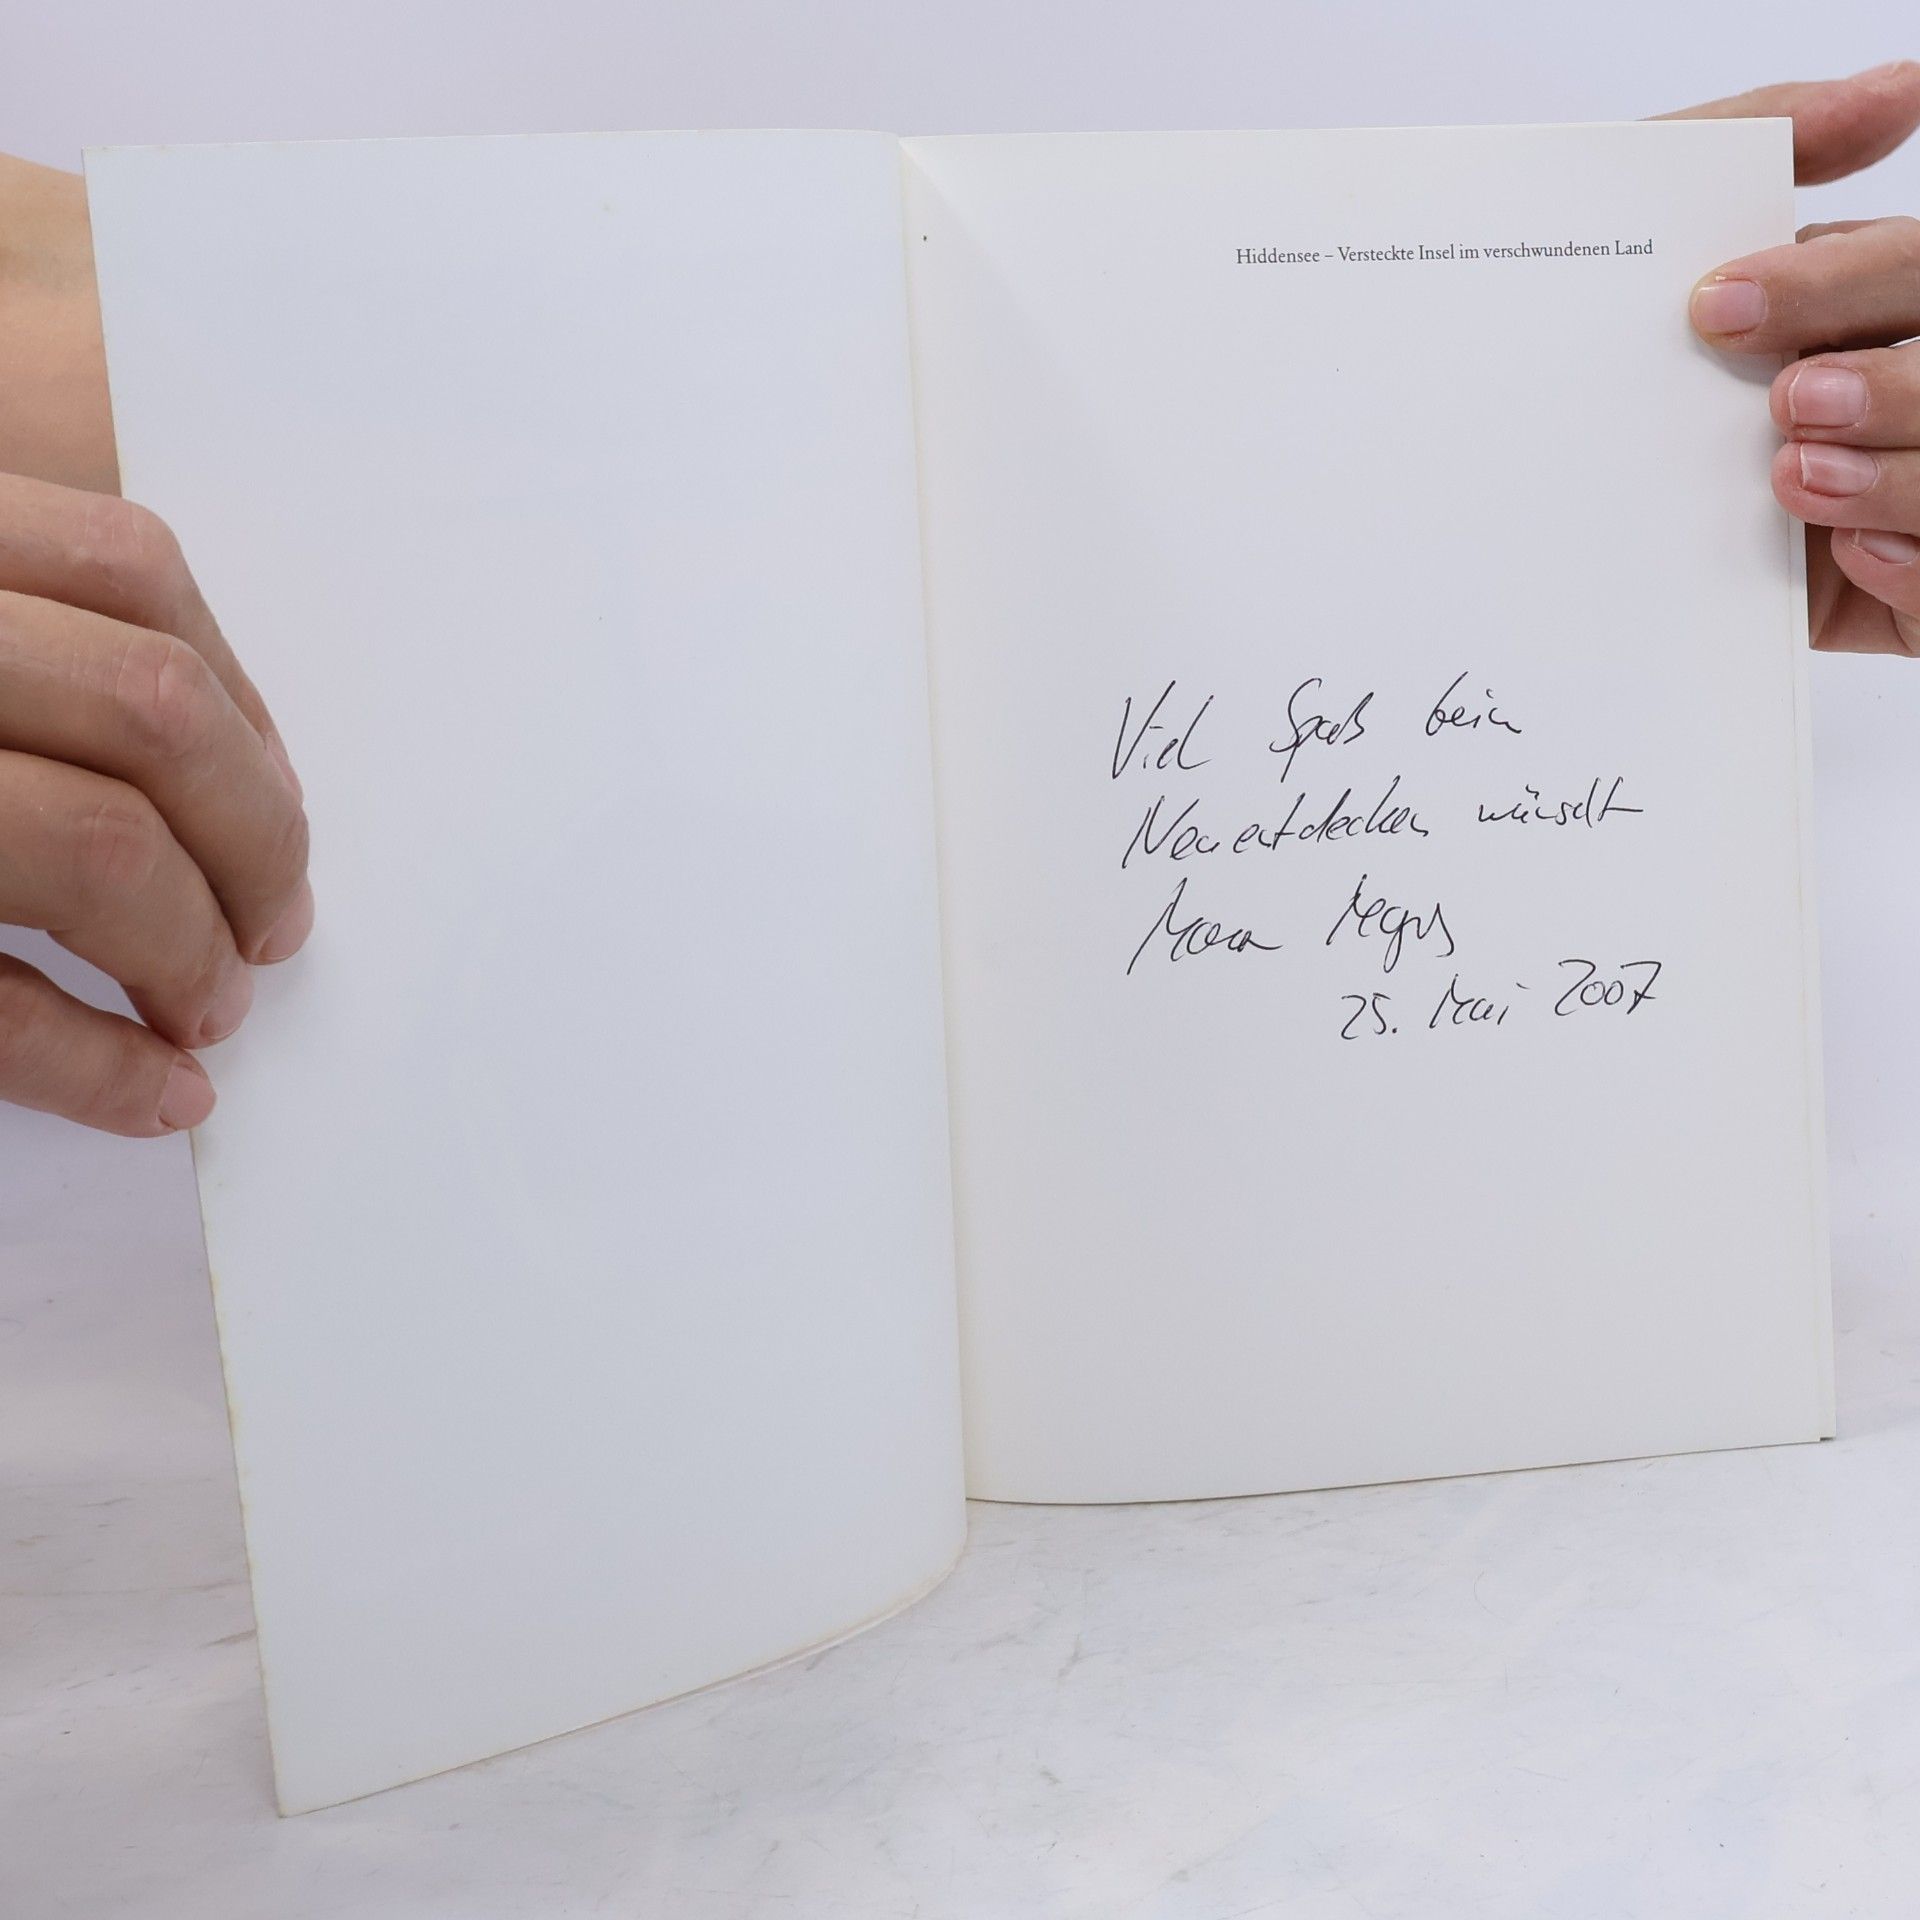 Hiddensee – Versteckte Insel im verschwundenen Land
Viel Spaß beim
Neuentdecken wünscht
25. Mai 2007